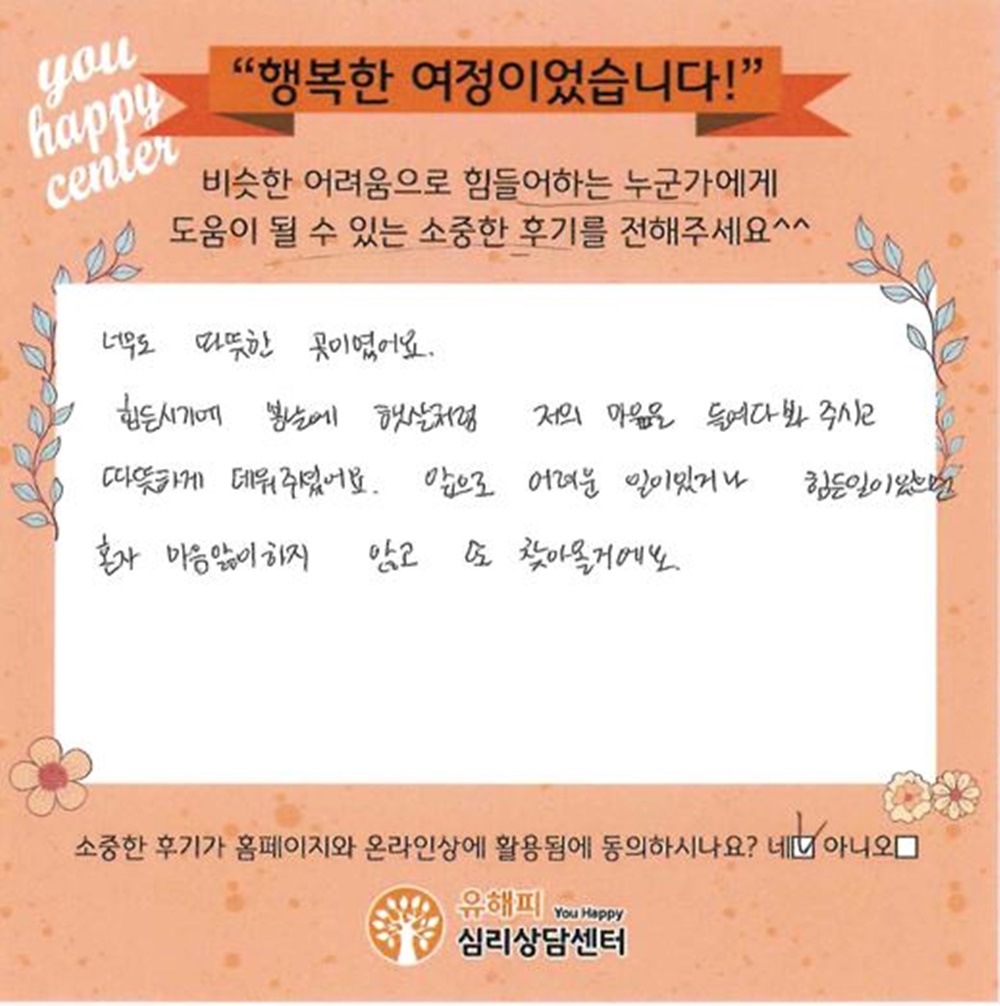 you
happy
center
“행복한 여정이었습니다!”
비슷한 어려움으로 힘들어하는 누군가에게
도움이 될 수 있는 소중한 후기를 전해주세요^^
너무도 따뜻한 곳이였어요.
힘든시기에 봄날에 햇살처럼 저의 마음을 들여다봐 주시고
따뜻하게 데워주셨어요. 앞으로 어려운 일이있거나 힘든일이있으면
혼자 마음앓이하지 않고 또 찾아올거에요.
소중한 후기가 홈페이지와 온라인상에 활용됨에 동의하시나요? 네☑ 아니오☐
유해피 You Happy
심리상담센터